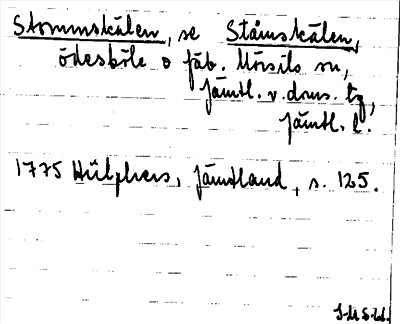 Stommskålen, se Ståmskålen,
ödesböle o fäb. Mörsils sn,
Jämtl. v. doms. tg,
Jämtl. l.
1775 Hülphers, Jämtland, s. 125.